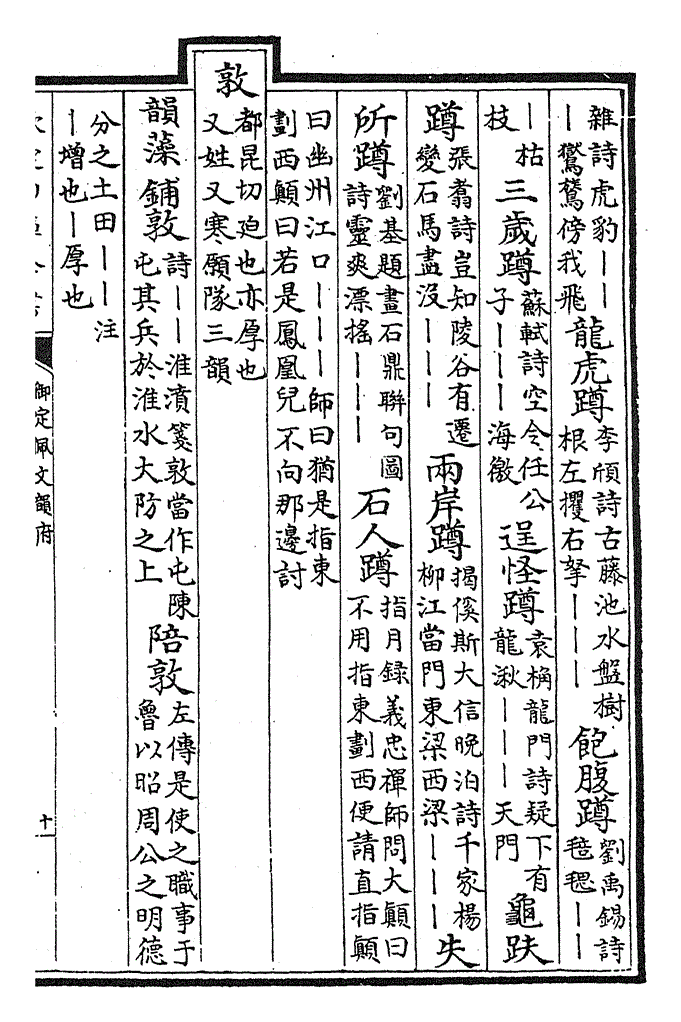 雜詩虎豹〡〡〡鷲鶖傍我飛龍虎蹲李頎詩古藤池水盤樹根左攫右拏〡〡〡飽腹蹲劉禹錫詩毰毸〡〡
〡枯枝三歲蹲蘇軾詩空令任公子〡〡〡海徼逞怪蹲袁桷龍門詩疑下有龍湫〡〡〡天門龜趺
蹲張翥詩豈知陵谷有遷變石馬盡沒〡〡〡兩岸蹲揭傒斯大信晚泊詩千家楊柳江當門東梁西梁〡〡〡失
所蹲劉基題畫石鼎聯句圖詩靈爽漂搖〡〡〡石人蹲指月錄義忠禪師問大顛曰不用指東劃西便請直指顛
曰幽州江口〡〡〡師曰猶是指東劃西顛曰若是鳳凰兒不向那邊討
敦都昆切廹也亦厚也又姓又寒願隊三韻
韻藻鋪敦詩〡〡淮濆箋敦當作屯陳屯其兵於淮水大防之上陪敦左傳是使之職事于魯以昭周公之明德
分之土田〡〡注〡增也〡厚也
御定佩文韻府
十